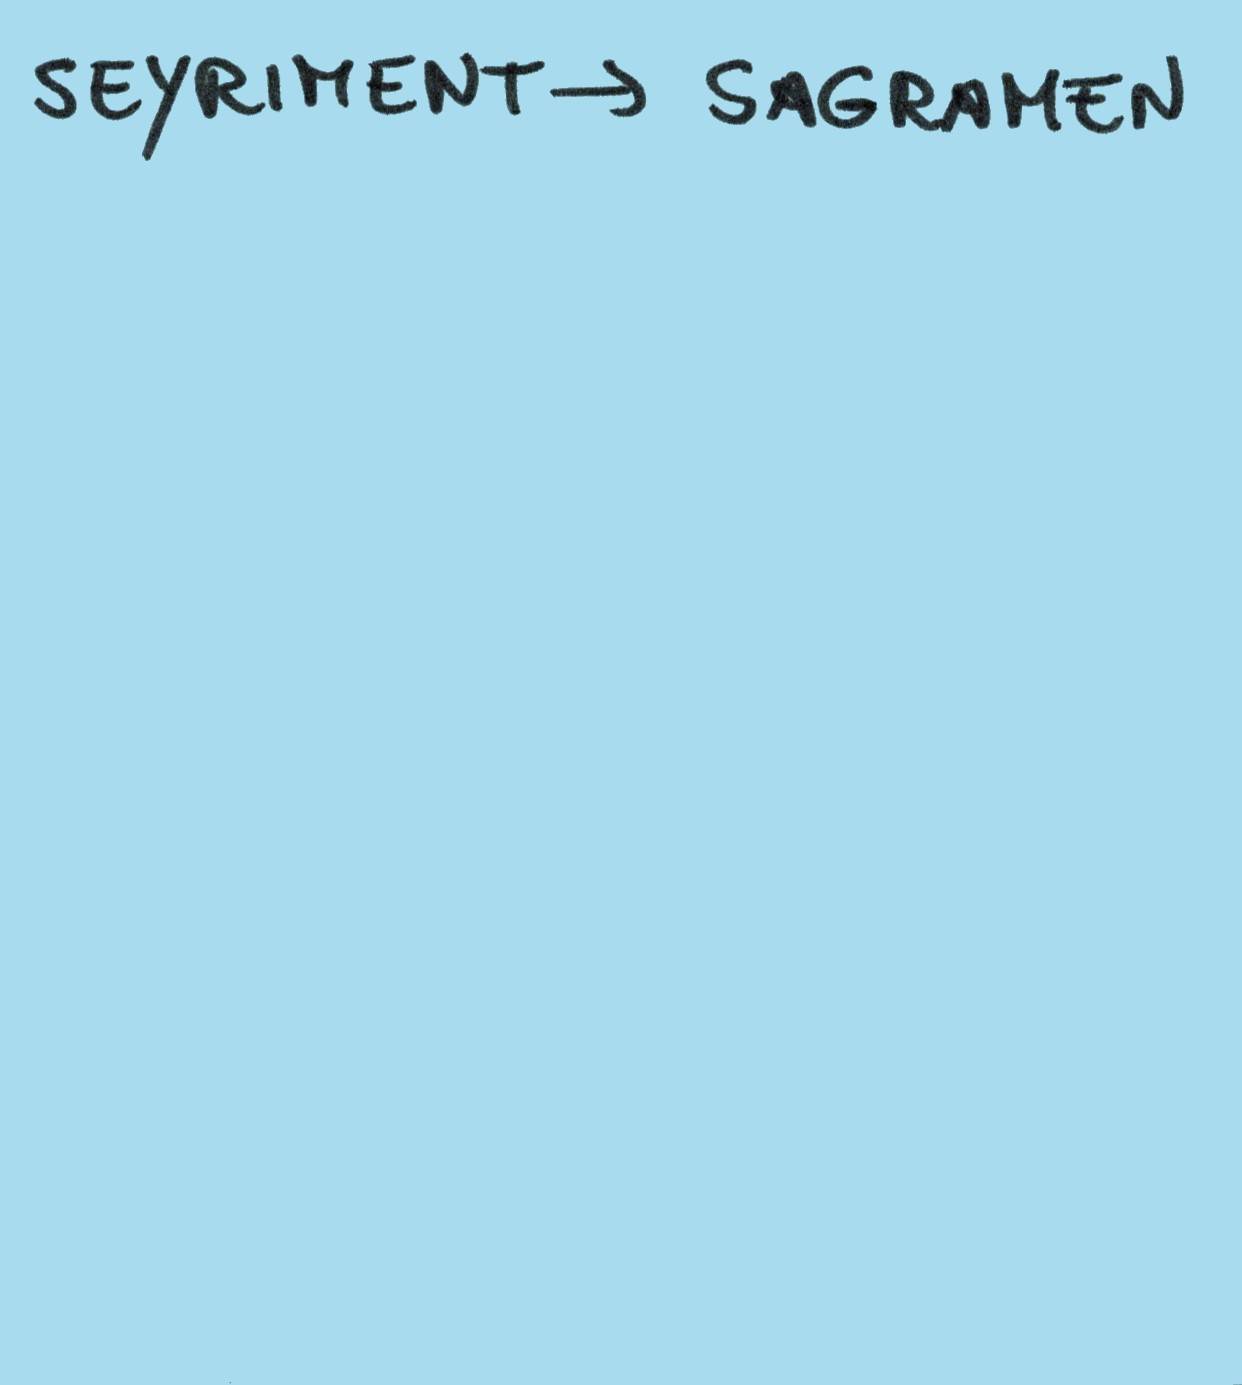 SEYRIMENT → SAGRAMEN